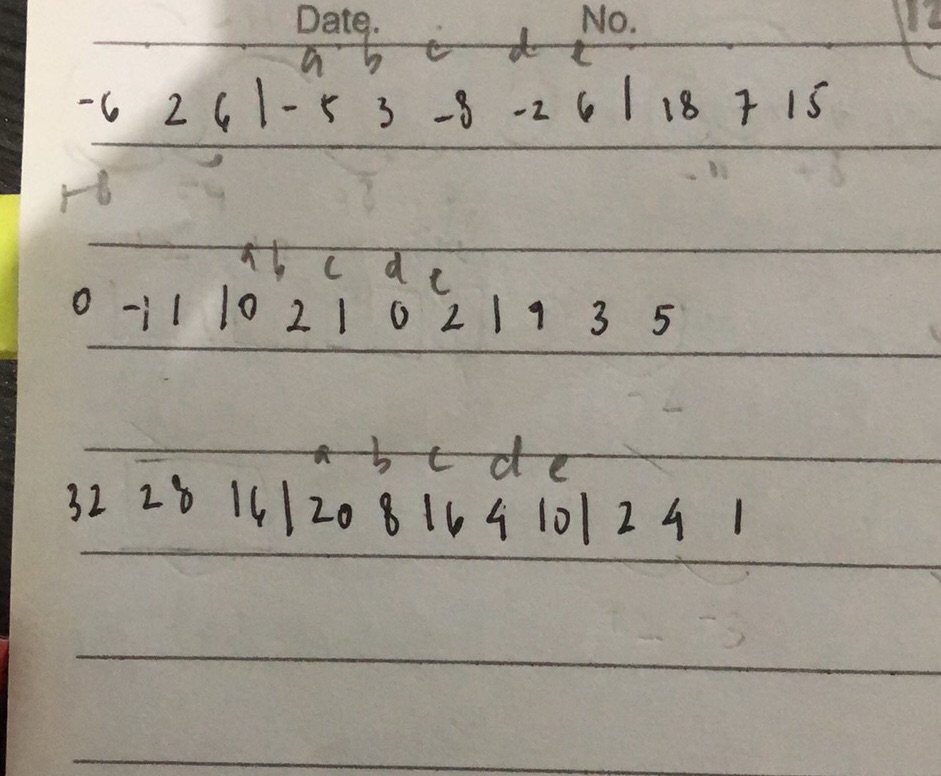 Date. No. 12
a b c d e
-6 2 6 | -5 3 -8 -2 6 | 18 7 15
a b c d e
0 -1 1 | 0 2 1 0 2 | 9 3 5
a b c d e
32 28 16 | 20 8 16 4 10 | 2 4 1